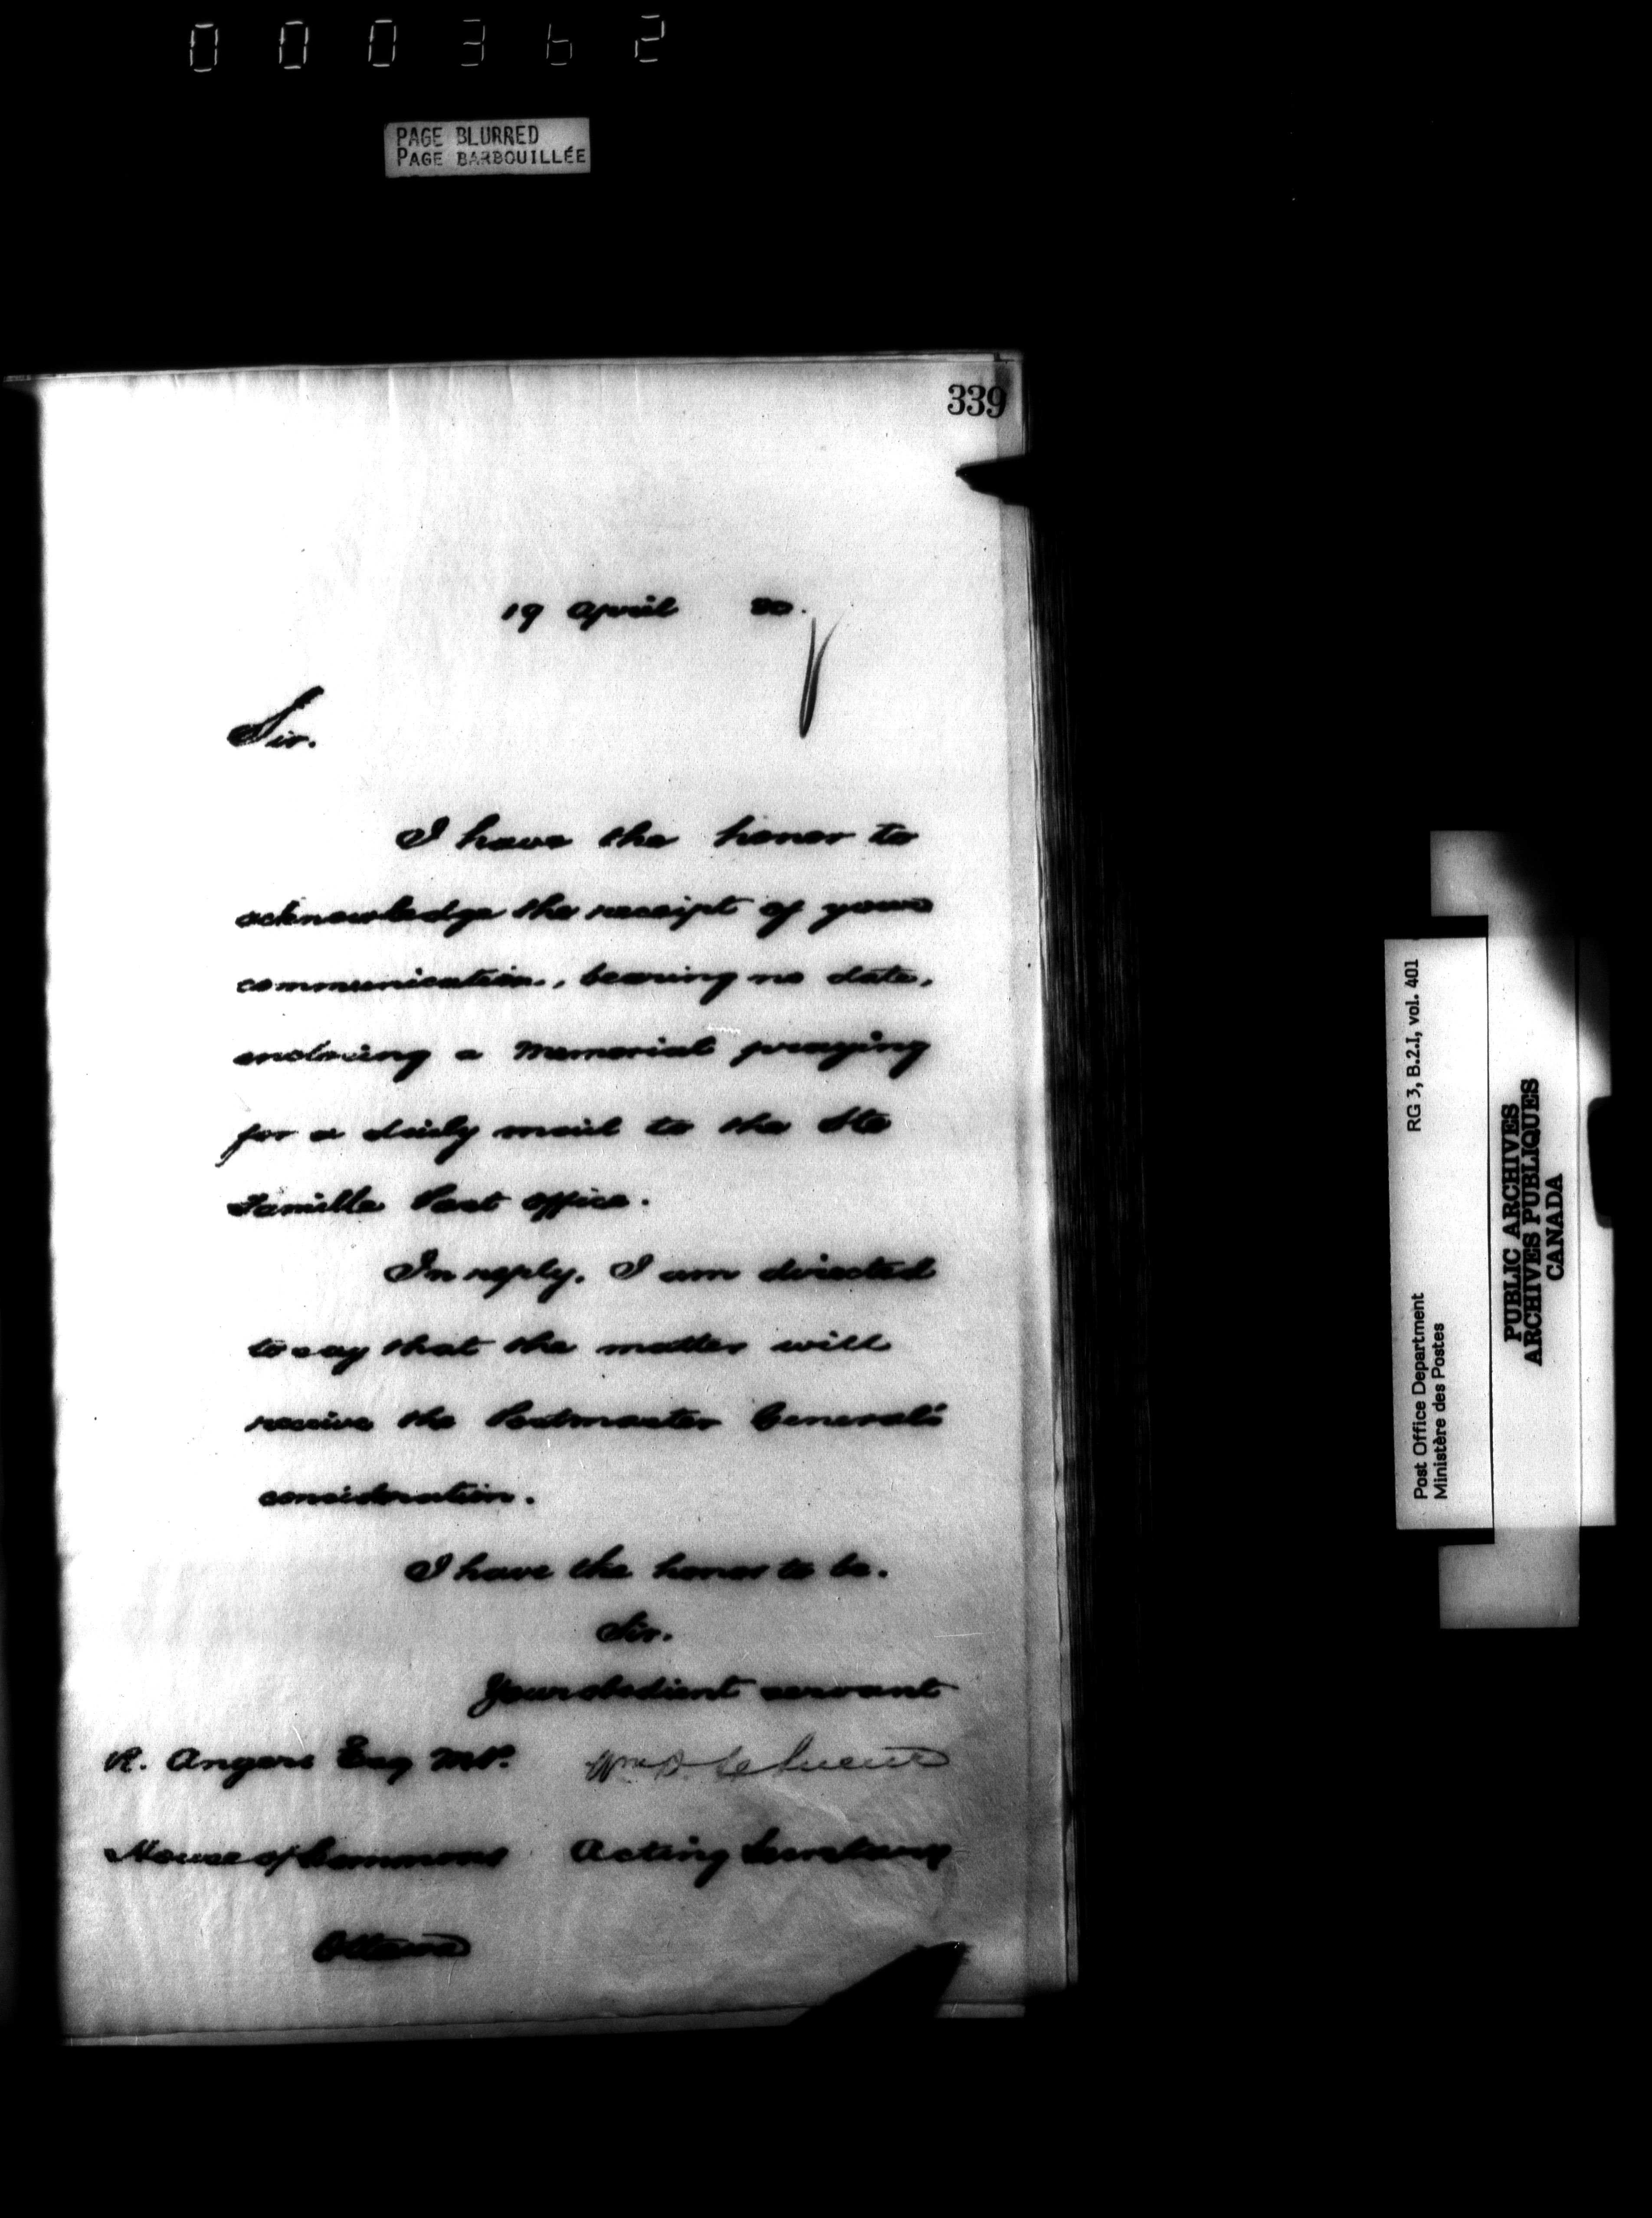 000362
PAGE BLURRED
PAGE BARBOUILLÉE
339
19 April 80.
Sir.
I have the honor to
acknowledge the receipt of your
communication, bearing no date,
enclosing a Memorial praying
for a daily mail to the Ste
Famille Post Office.
In reply, I am directed
to say that the matter will
receive the Postmaster General's
consideration.
I have the honor to be.
Sir.
Your obedient servant
R. Angers Esq M.P.
Wm D. LeSueur
House of Commons
Acting Secretary
Ottawa
Post Office Department
Ministère des Postes
RG 3, B.2.I, vol. 401
PUBLIC ARCHIVES
ARCHIVES PUBLIQUES
CANADA